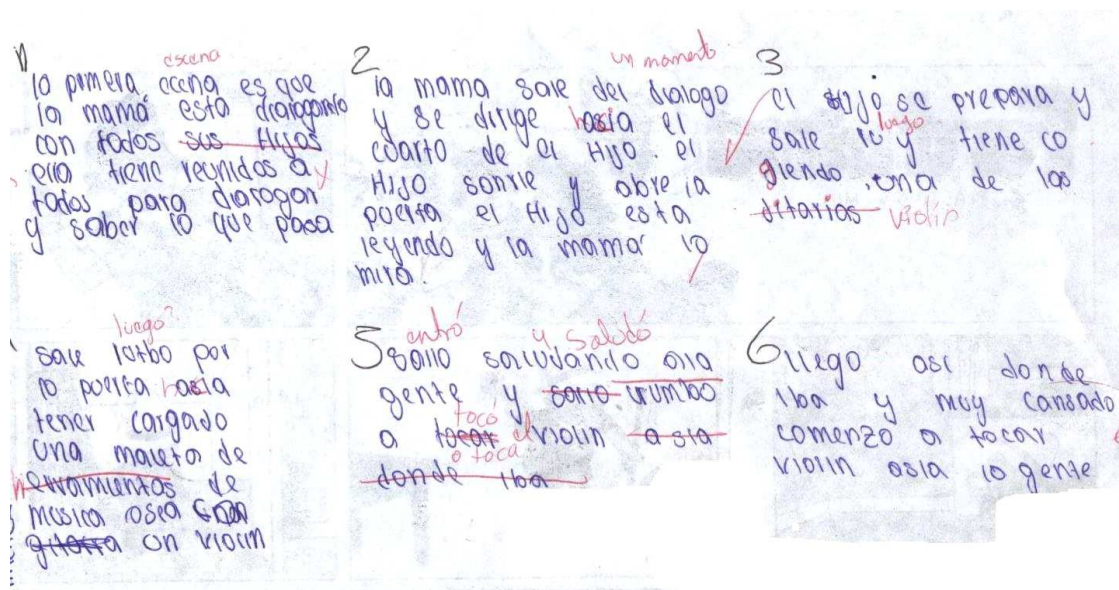 1
escena
la primera ecena es que
la mamá esta dialogando
con todos sus Hijos
ella tiene reunidos a y
todos para dialogar
y saber lo que pasa
2
un momento
la mama sale del dialogo
y se dirige hasia el
cuarto de el Hijo. el
Hijo sonrie y abre la
puerta el Hijo esta
leyendo y la mama lo
mira.
3
el Hijo se prepara y
luego
sale y tiene co
giendo una de las
gitarias violin
luego?
sale por
la puerta hasia
tener cargado
una maleta de
herramientas de
musica osea
gitarra un violin
5 entró y Saludó
salio saludando ala
gente y salio rrumbo
tocó
a tocar el violin a sia
o toca
donde iba
6 llego asi donde
iba y muy cansado
comenzo a tocar
violin asia la gente